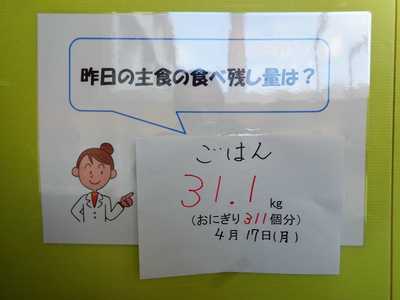 昨日の主食の食べ残し量は？
ごはん
31.1 kg
(おにぎり 311個分)
4月17日(月)